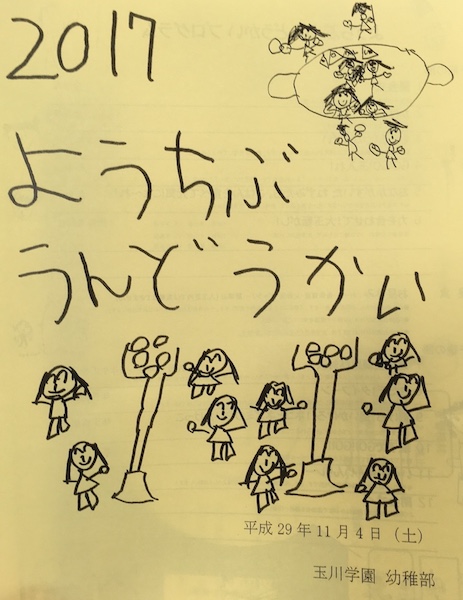 2017
ようちぶ
うんどうかい
平成29年11月4日（土）
玉川学園 幼稚部